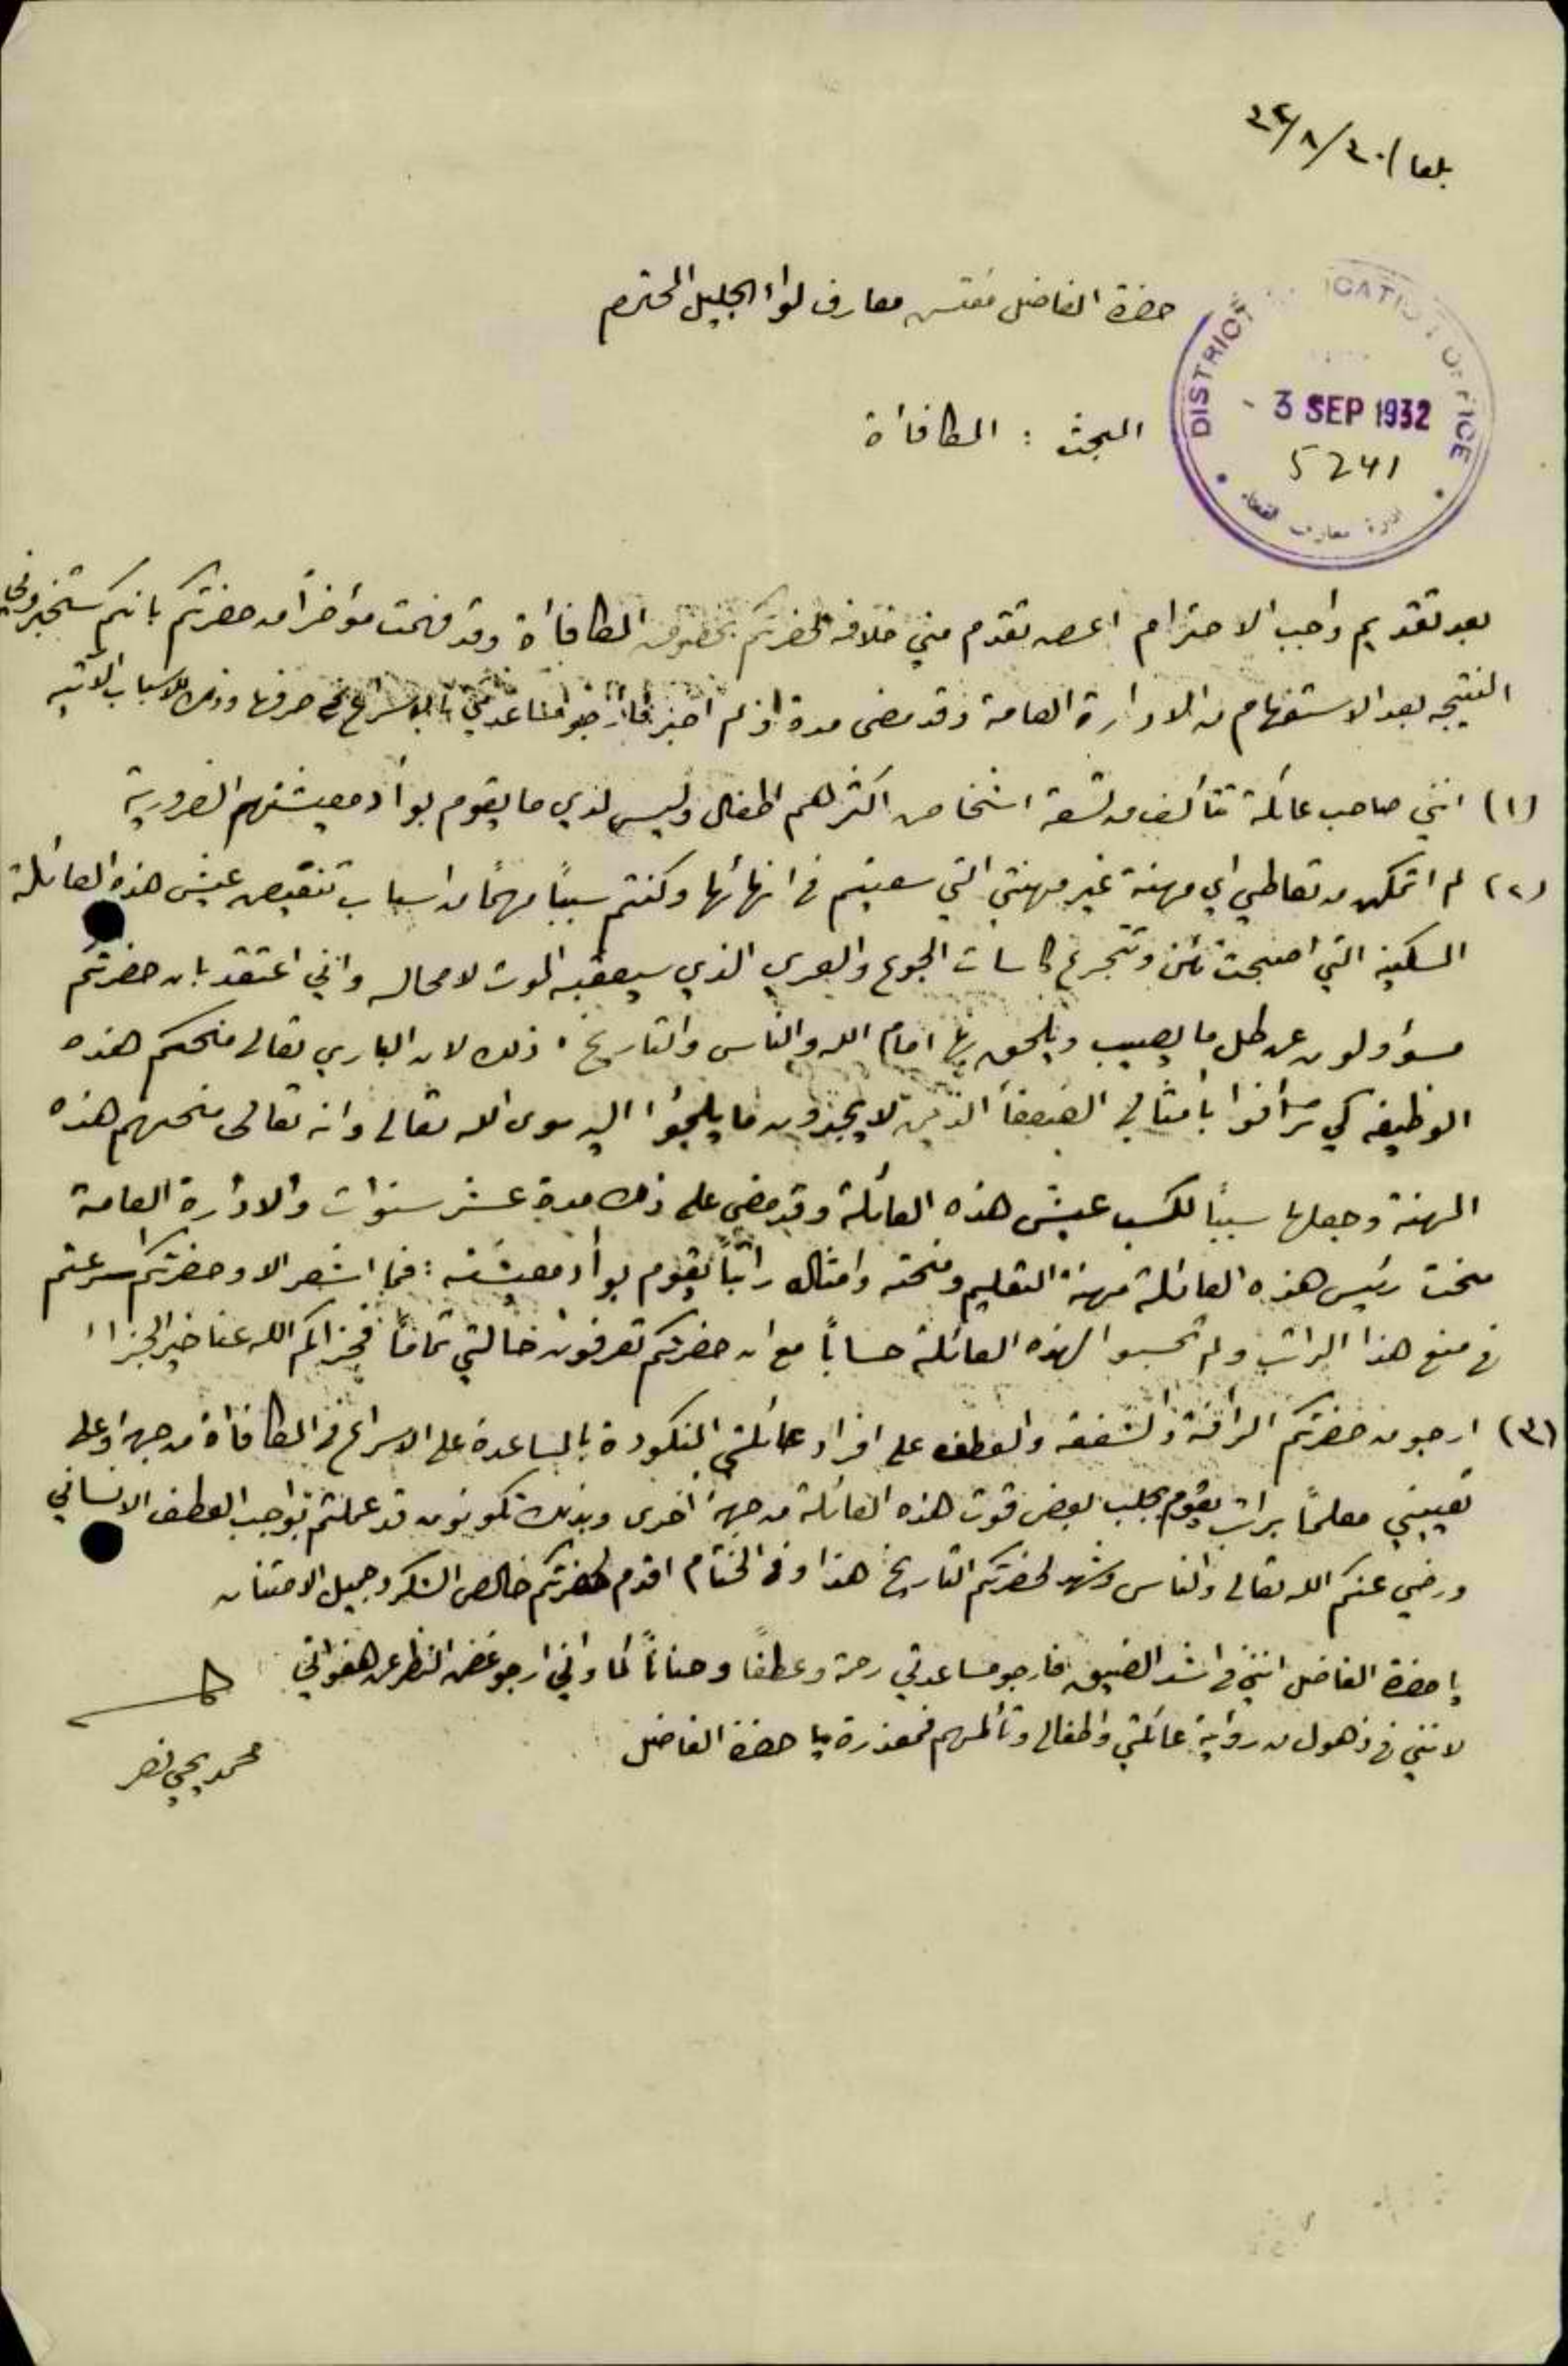 بلعا / ٣٠/٨/٣٢
حضرة الفاضل مفتش معارف لواء الجليل المحترم
DISTRICT EDUCATION OFFICE
- 3 SEP 1932
5241
ادارة معارف القضاء
البحث : المكافأة
بعد تقديم واجب الاحترام اعرض تقدم مني خلافه لحضرتكم بخصوص المكافأة وقد فهمت مؤخراً من حضرتكم بانكم ستخبروني
النتيجه بعد الاستفهام من الادارة العامة وقد مضى مدة ولم اخبر فأرجو مساعدتي بالاسراع في صرفها وذلك للاسباب الاتيه
(١) انني صاحب عائلة تتألف من تسعة اشخاص اكثرهم اطفال وليس لدي ما يقوم بوأد معيشتهم الضرورية
(٢) لم اتمكن من تعاطي اي مهنة غير مهنتي التي سعيتم في انهائها وكنتم سبباً مهماً من اسباب تنقيص عيش هذه العائلة
المسكينه التي اصبحت تئن وتتجرع كاسات الجوع والعري الذي سيعقبه الموت لا محاله واني اعتقد بان حضرتكم
مسؤولون عن كل ما يصيب ويلحق بها امام الله والناس والتاريخ ، ذلك لان الباري تعالى منحكم هذه
الوظيفه كي ترأفوا بأمثالي الضعفأ الذين لا يجدون ما يلجؤا اليه سوى الله تعالى وانه تعالى منحهم هذه
المهنة وجعلها سبباً لكسب عيش هذه العائلة وقد مضى على ذلك مدة عشر سنوات والادارة العامة
منحت رئيس هذه العائلة مهنة التعليم ومنحته وامثاله راتباً يقوم بوأد معيشته : فما اشعر الا وحضرتكم اسرعتم
في منع هذا الراتب ولم تحسبوا لهذه العائلة حساباً مع ان حضرتكم تعرفون حالتي تماماً فجزاكم الله عنا خير الجزاء
(٣) ارجو من حضرتكم الرأفة والشفقه والعطف على افراد عائلتي المنكودة بالمساعدة على الاسراع في المكافأة من جهة وعلى
تعييني معلماً براتب يقوم بجلب بعض قوت هذه العائلة من جهة اخرى وبذلك تكونون قد عملتم بواجب العطف الانساني
ورضي عنكم الله تعالى والناس وشهد لحضرتكم التاريخ هذا وفي الختام اقدم لحضرتكم خالص الشكر وجميل الامتنان
يا حضرة الفاضل انني في اشد الضيق فارجو مساعدتي رحمة وعطفاً وحناناً كما واني ارجو غض النظر عن هفواتي
لانني في ذهول من رؤية عائلتي واطفالي وتألمهم فمعذرة يا حضرة الفاضل
محمد يحيى نصر